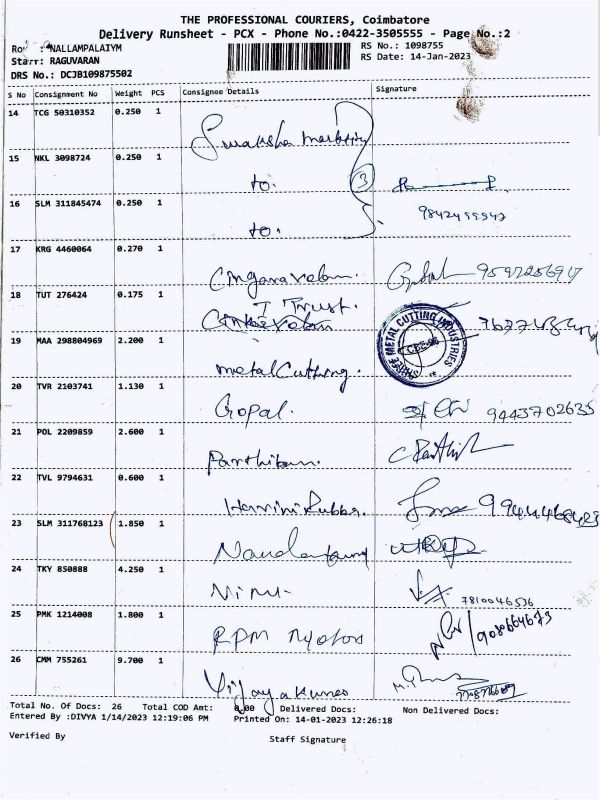 THE PROFESSIONAL COURIERS, Coimbatore
Delivery Runsheet - PCX - Phone No.:0422-3505555 - Page No.:2
NALLAMPALAIYM
RS No.: 1098755
RAGUVARAN
RS Date: 14-Jan-2023
DRS No.: DCJB109875502
S No Consignment No Weight PCS Consignee Details Signature
14 TCG 50310352 0.250 1
15 NKL 3098724 0.250 1
to. 3
16 SLM 311845474 0.250 1
to.
17 KRG 4460064 0.270 1
18 TUT 276424 0.175 1
Trust.
19 MAA 298804969 2.200 1
METAL CUTTING INDUSTRIES
metal Cutting.
20 TVR 2103741 1.130 1
Gopal. 9443702635
21 POL 2209859 2.600 1
Parthiban.
22 TVL 9794631 0.600 1
Harrini Rubber.
23 SLM 311768123 1.850 1
24 TKY 850888 4.250 1
7810046536
25 PMK 1214008 1.800 1
RPM
26 CMM 755261 9.700 1
Total No. Of Docs: 26 Total COD Amt: 0.00 Delivered Docs: Non Delivered Docs:
Entered By :DIVYA 1/14/2023 12:19:06 PM Printed On: 14-01-2023 12:26:18
Verified By Staff Signature